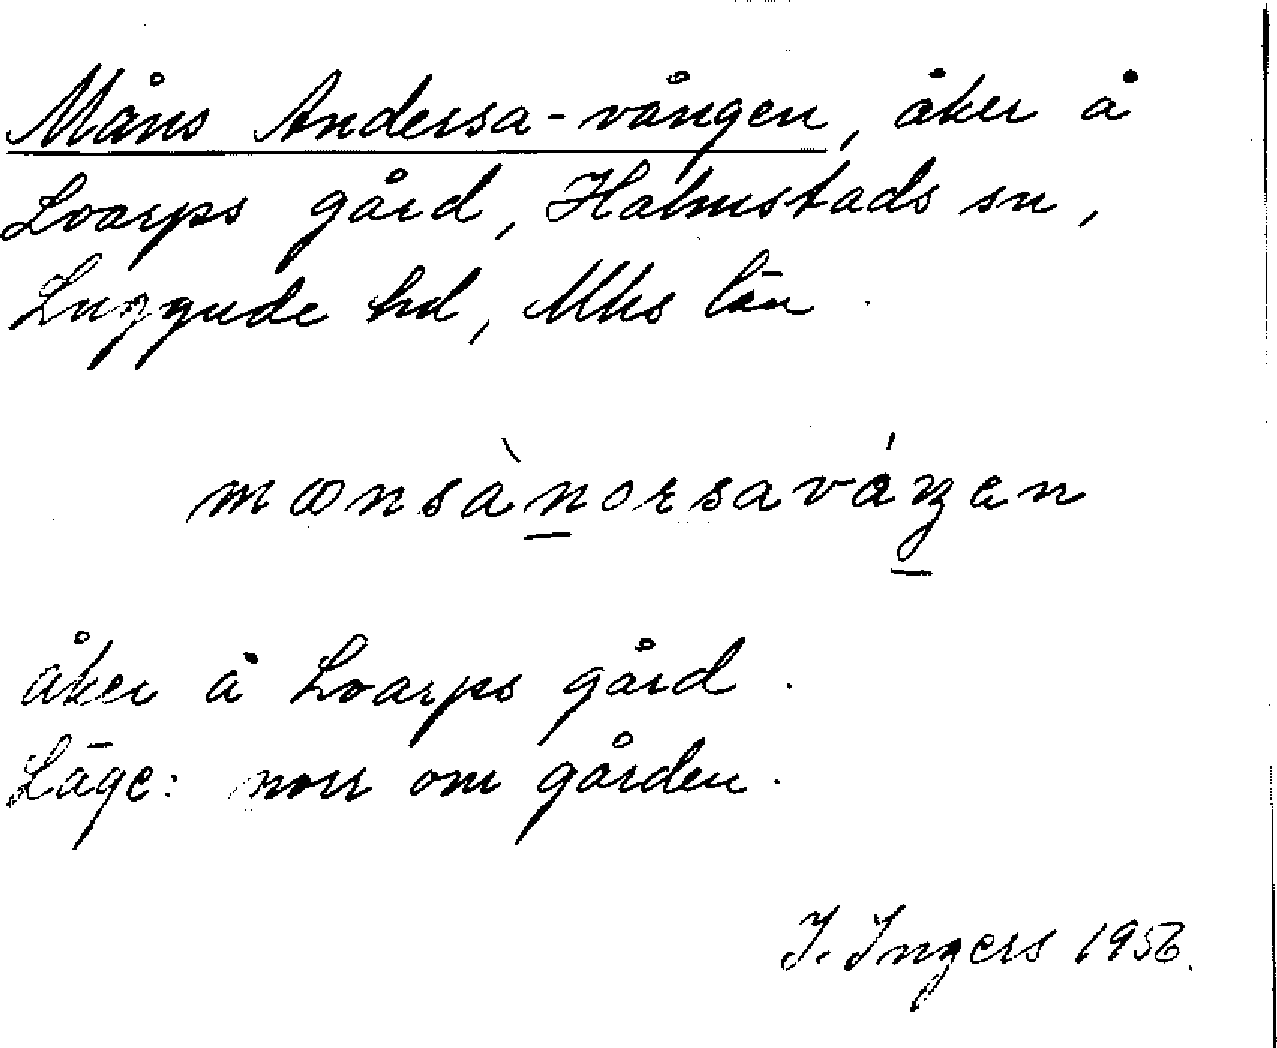 Måns Andersa-vången, åker å
Loarps gård, Halmstads sn,
Luggude hd, Mhs län.
mɷnsànorsaváŋen
åker å Loarps gård.
Läge: norr om gården.
I. Ingers 1956.